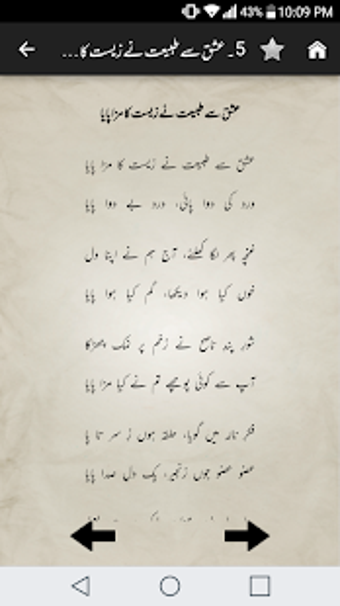 43% 10:09 PM
5۔ عشق سے طبیعت نے زیست کا...
عشق سے طبیعت نے زیست کا مزا پایا
عشق سے طبیعت نے زیست کا مزا پایا
درد کی دوا پائی، درد بے دوا پایا
غنچہ پھر لگا کھلنے، آج ہم نے اپنا دل
خوں کیا ہوا دیکھا، گم کیا ہوا پایا
شور پندِ ناصح نے زخم پر نمک چھڑکا
آپ سے کوئی پوچھے تم نے کیا مزا پایا
فکر نالہ میں گویا، حلقہ ہوں ز سر تا پا
عضو عضو جوں زنجیر، یک دل صدا پایا